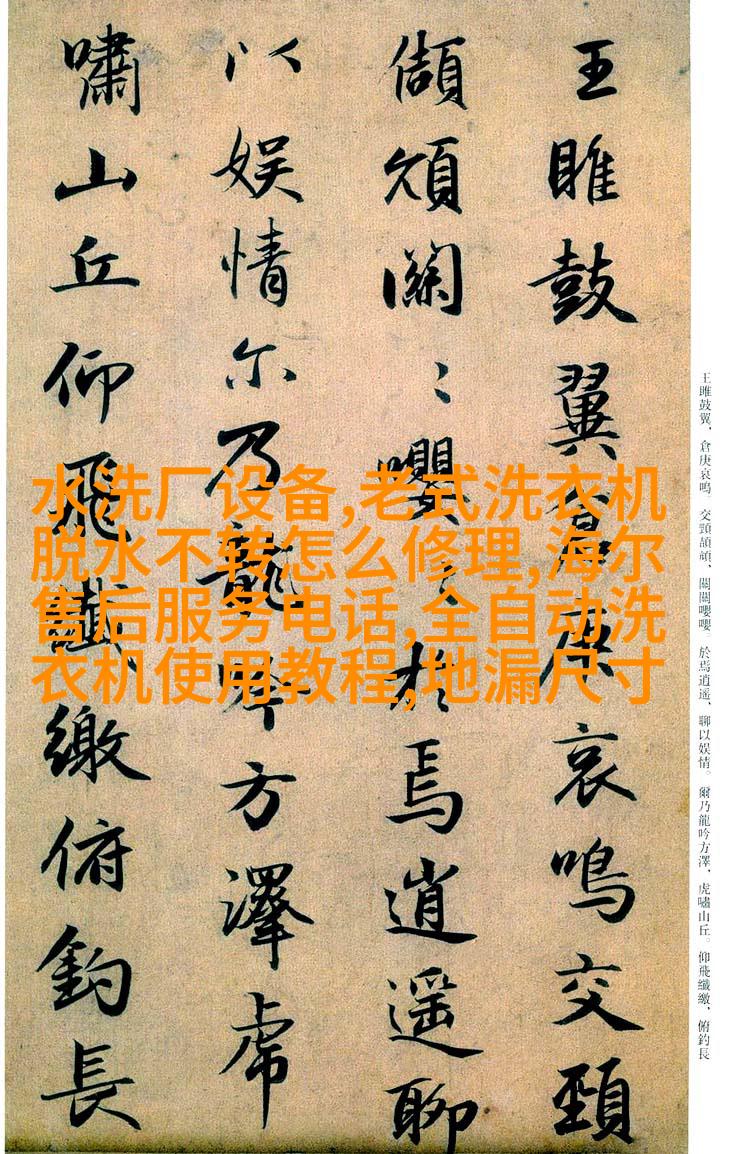 王雎鼓翼、倉庚哀鳴。交頸頡頏、關關嚶嚶。於焉逍遥、聊以娱情。爾乃龍吟方澤、虎嘯山丘。仰飛纖繳、俯釣長
王雎鼓翼倉庚哀鳴交頸
頡頏關〻嚶〻於焉逍遥聊
以娱情尔乃龍吟方澤虎
嘯山丘仰飛纖繳俯釣長
水洗厂设备,老式洗衣机
脱水不转怎么修理,海尔
售后服务电话,全自动洗
衣机使用教程,地漏尺寸